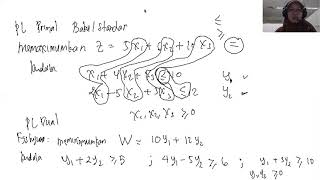 PL Primal Babel Standar
≤
memaksimumkan Z = 5x₁ + 6x₂ + 10x₃ =
kendala
x₁ + 4x₂ + x₃ ≥ 10 y₁
2x₁ - 5x₂ + 3x₃ ≤ 12 y₂
x₁, x₂, x₃ ≥ 0
PL Dual
Fs tujuan: meminimumkan W = 10y₁ + 12y₂
kendala y₁ + 2y₂ ≥ 5 ; 4y₁ - 5y₂ ≥ 6 ; y₁ + 3y₂ ≥ 10
y₁, y₂ ≥ 0